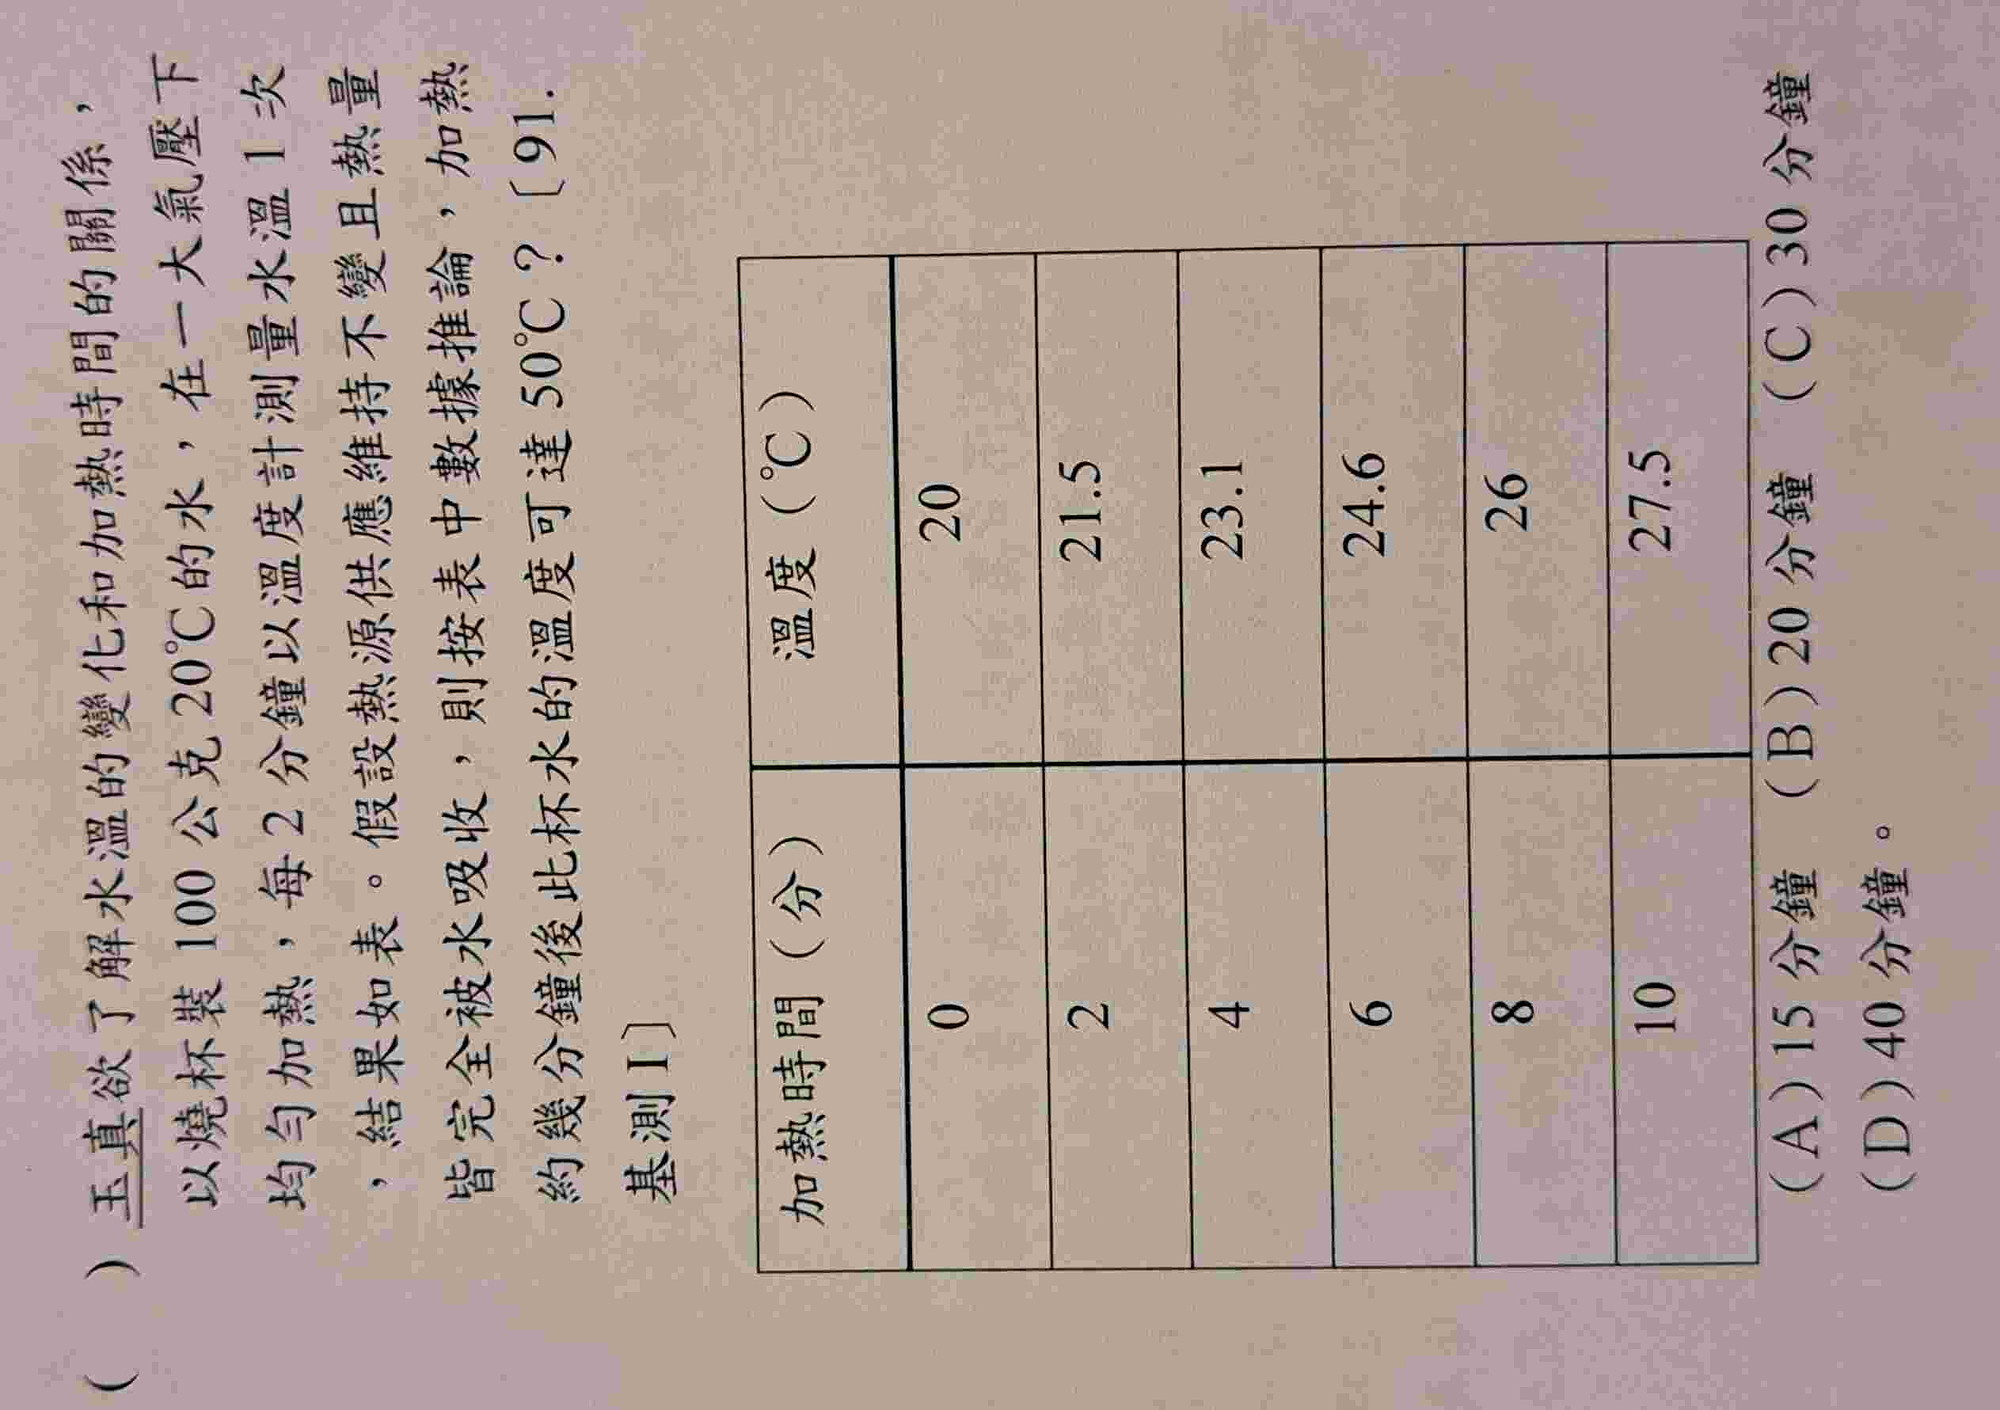 ( ) 玉真欲了解水溫的變化和加熱時間的關係，
以燒杯裝 100 公克 20℃的水，在一大氣壓下
均勻加熱，每 2 分鐘以溫度計測量水溫 1 次
，結果如表。假設熱源供應維持不變且熱量
皆完全被水吸收，則按表中數據推論，加熱
約幾分鐘後此杯水的溫度可達 50℃？〔91.
基測 I〕
加熱時間（分） 溫度（℃）
0 20
2 21.5
4 23.1
6 24.6
8 26
10 27.5
（A）15 分鐘 （B）20 分鐘 （C）30 分鐘
（D）40 分鐘。